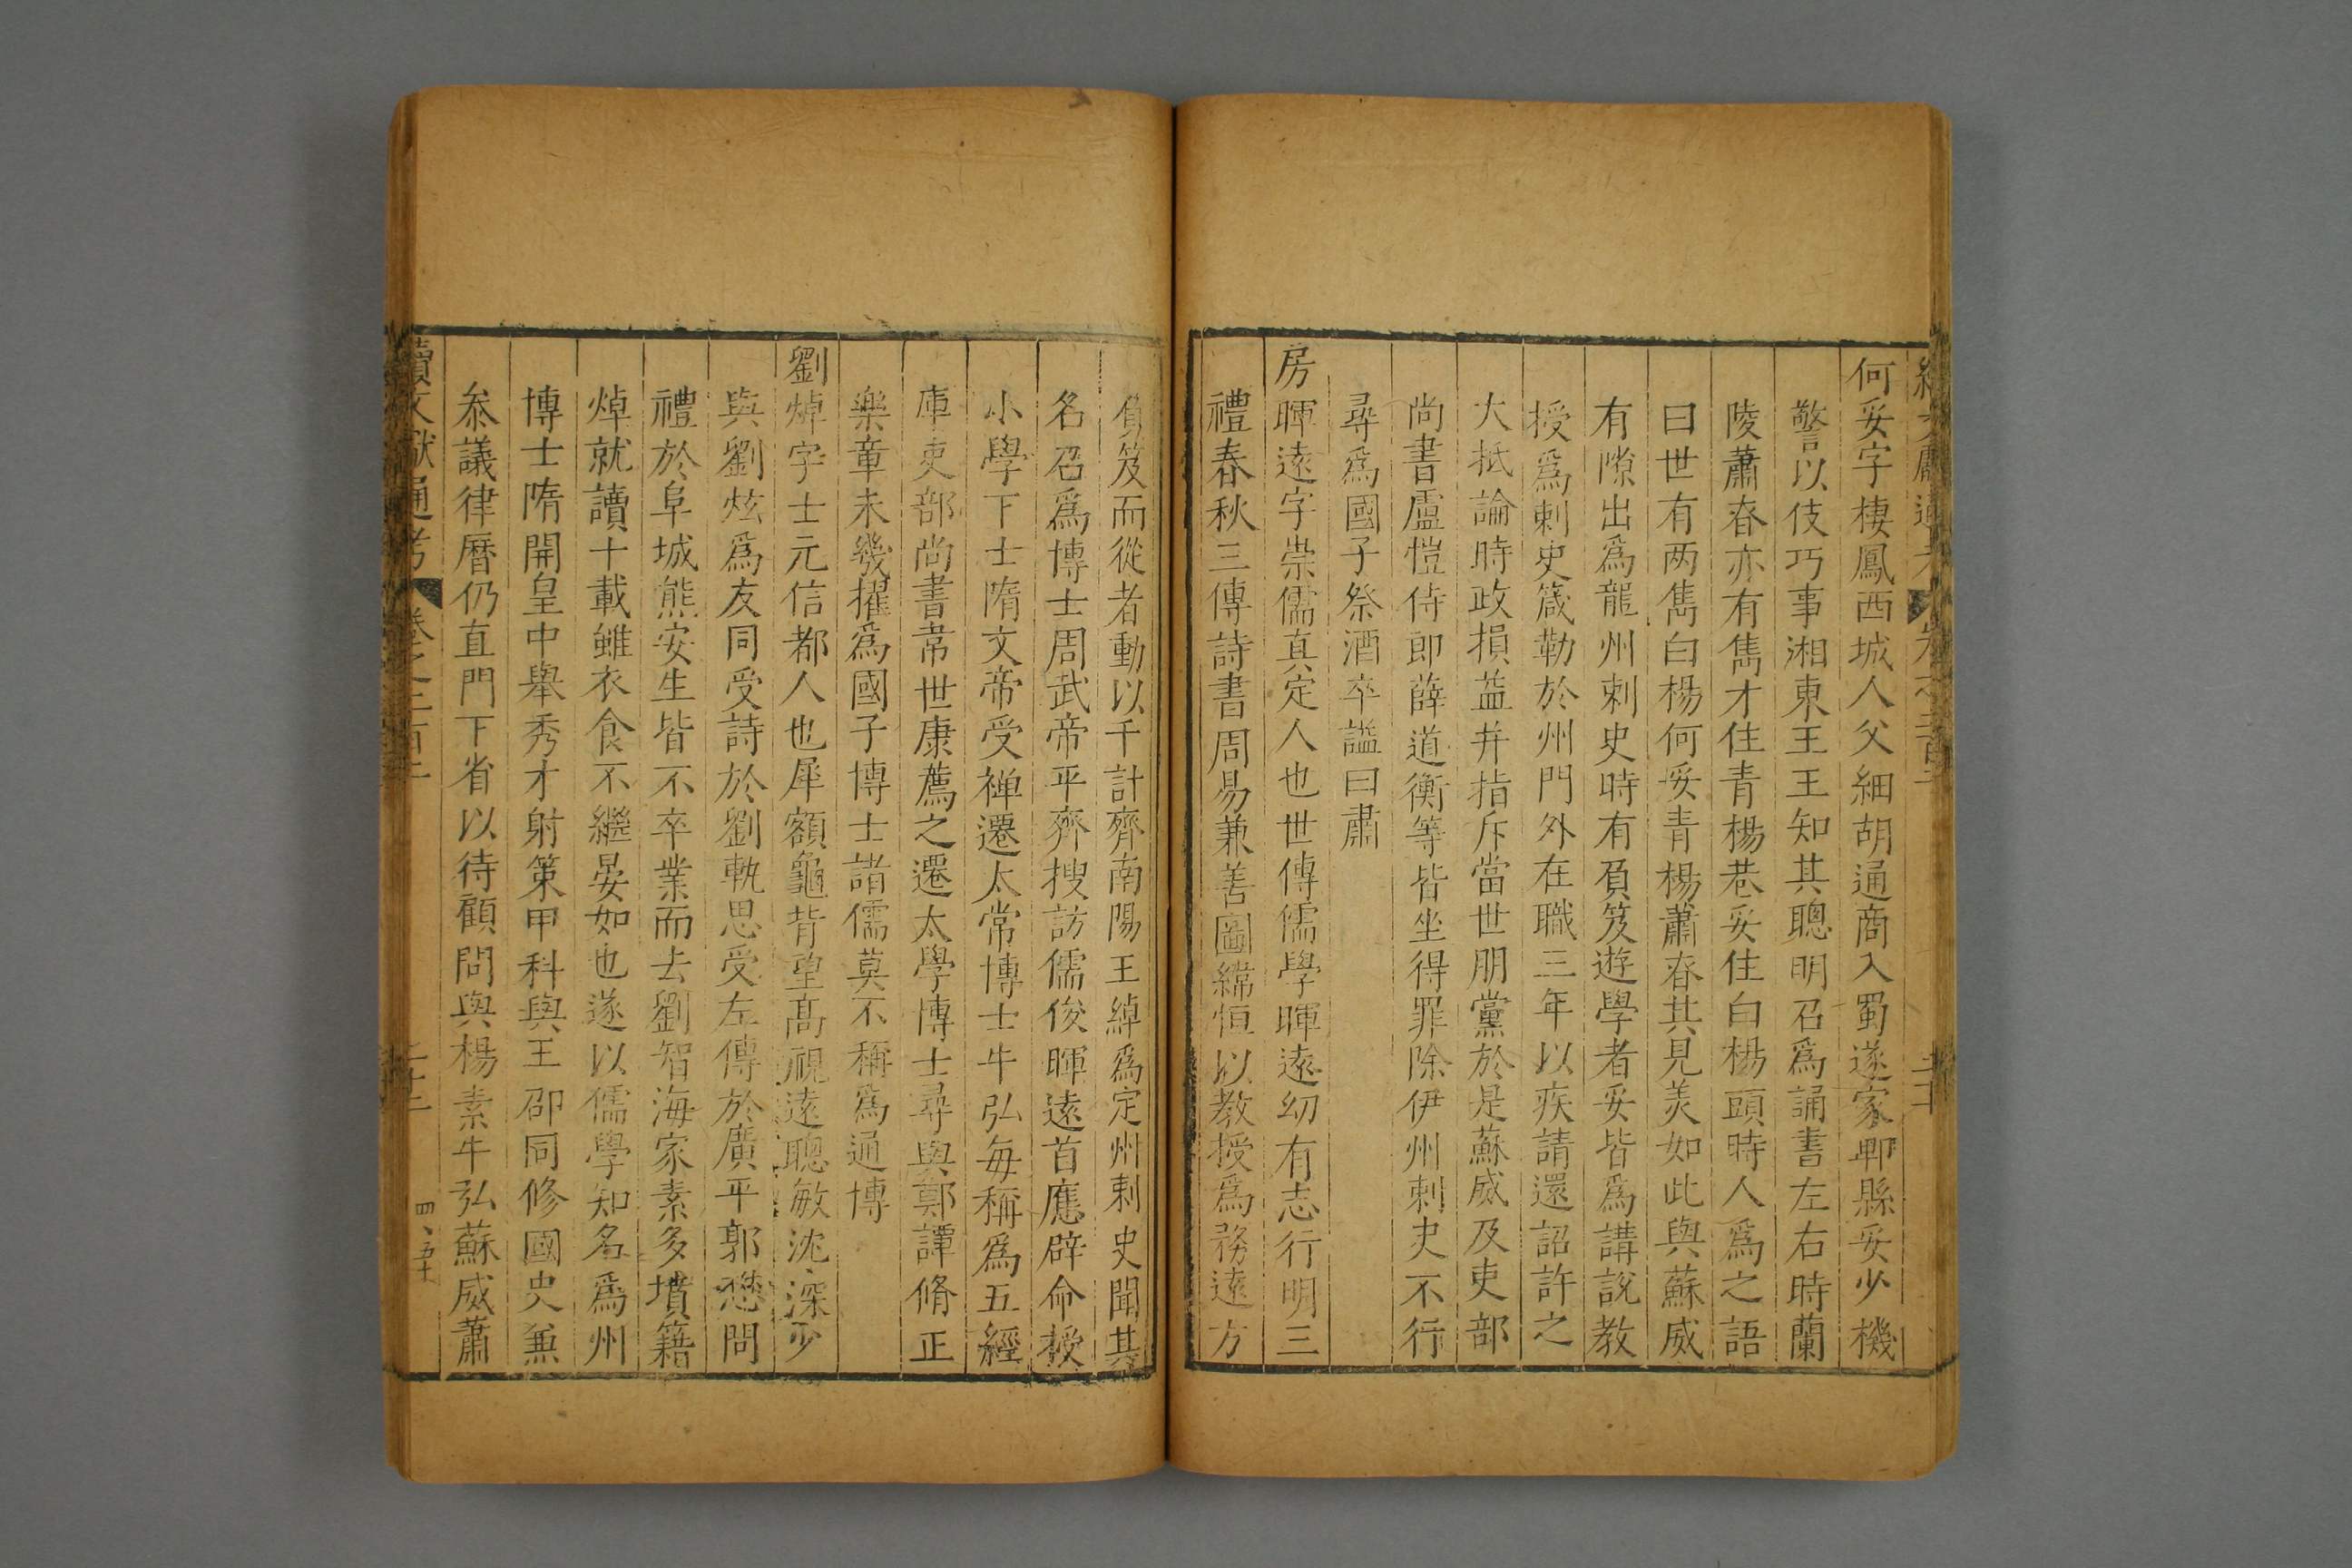 何妥字棲鳳西城人父細胡通商入蜀遂家郫縣妥少機
警以伎巧事湘東王王知其聰明召為誦書左右時蘭
陵蕭眘亦有雋才住青楊巷妥住白楊頭時人為之語
曰世有两雋白楊何妥青楊蕭眘其見羙如此與蘇威
有隙出為龍州刺史時有負笈遊學者妥皆為講說教
授為刺史箴勒於州門外在職三年以疾請還詔許之
大抵論時政損益并指斥當世朋黨於是蘇威及吏部
尚書盧愷侍郎薛道衡等皆坐得罪除伊州刺史不行
尋為國子祭酒卒謚曰肅
房暉遠字崇儒真定人也世傳儒學暉遠幼有志行明三
禮春秋三傳詩書周易兼善圖緯恒以教授為務遠方
負笈而從者動以千計齊南陽王綽為定州刺史聞其
名召為博士周武帝平齊搜訪儒俊暉遠首應辟命授
小學下士隋文帝受禅遷太常博士牛弘每稱為五經
庫吏部尚書韋世康薦之遷太學博士尋與鄭譯脩正
樂章未幾擢為國子博士諸儒莫不稱為通博
劉焯字士元信都人也犀額龜背望高視遠聰敏沈深少
與劉炫為友同受詩於劉軌思受左傳於廣平郭懋問
禮於阜城熊安生皆不卒業而去劉智海家素多墳籍
焯就讀十載雖衣食不繼晏如也遂以儒學知名為州
博士隋開皇中舉秀才射策甲科與王邵同修國史兼
叅議律曆仍直門下省以待顧問與楊素牛弘蘇威蕭
續文獻通考 卷之二百二
四、五十